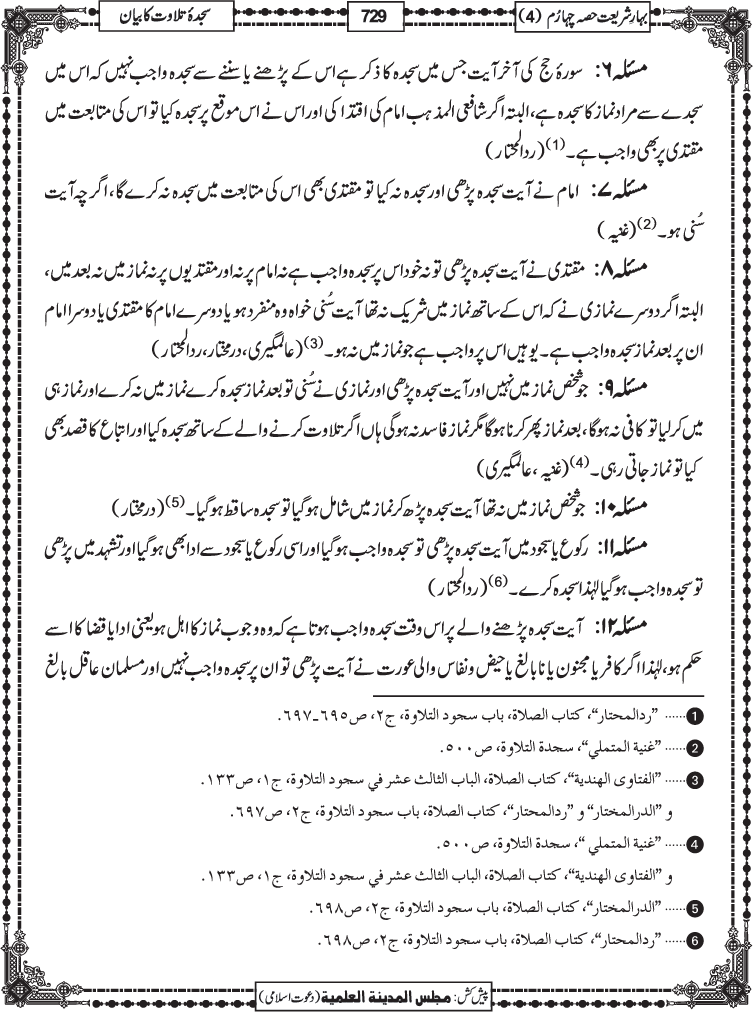 بہارِ شریعت حصہ چہارم (4)
729
سجدۂ تلاوت کا بیان
مسئلہ ۶: سورۂ حج کی آخر آیت جس میں سجدہ کا ذکر ہے اس کے پڑھنے یا سننے سے سجدہ واجب نہیں کہ اس میں
سجدے سے مراد نماز کا سجدہ ہے، البتہ اگر شافعی المذہب امام کی اقتدا کی اور اس نے اس موقع پر سجدہ کیا تو اس کی متابعت میں
مقتدی پر بھی واجب ہے۔(1) (ردالمحتار)
مسئلہ ۷: امام نے آیت سجدہ پڑھی اور سجدہ نہ کیا تو مقتدی بھی اس کی متابعت میں سجدہ نہ کرے گا، اگرچہ آیت
سُنی ہو۔(2) (غنیہ)
مسئلہ ۸: مقتدی نے آیت سجدہ پڑھی تو نہ خود اس پر سجدہ واجب ہے نہ امام پر نہ اور مقتدیوں پر نہ نماز میں نہ بعد میں،
البتہ اگر دوسرے نمازی نے کہ اس کے ساتھ نماز میں شریک نہ تھا آیت سُنی خواہ وہ منفرد ہو یا دوسرے امام کا مقتدی یا دوسرا امام
ان پر بعد نماز سجدہ واجب ہے۔ یوہیں اس پر واجب ہے جو نماز میں نہ ہو۔(3) (عالمگیری، درمختار، ردالمحتار)
مسئلہ ۹: جو شخص نماز میں نہیں اور آیت سجدہ پڑھی اور نمازی نے سُنی تو بعد نماز سجدہ کرے نماز میں نہ کرے اور نماز ہی
میں کر لیا تو کافی نہ ہوگا، بعد نماز پھر کرنا ہوگا مگر نماز فاسد نہ ہوگی ہاں اگر تلاوت کرنے والے کے ساتھ سجدہ کیا اور اتباع کا قصد بھی
کیا تو نماز جاتی رہی۔(4) (غنیہ ، عالمگیری)
مسئلہ ۱۰: جو شخص نماز میں نہ تھا آیت سجدہ پڑھ کر نماز میں شامل ہوگیا تو سجدہ ساقط ہوگیا۔(5) (درمختار)
مسئلہ ۱۱: رکوع یا سجود میں آیت سجدہ پڑھی تو سجدہ واجب ہوگیا اور اسی رکوع یا سجود سے ادا بھی ہوگیا اور تشہد میں پڑھی
تو سجدہ واجب ہوگیا لہٰذا سجدہ کرے۔(6) (ردالمحتار)
مسئلہ ۱۲: آیت سجدہ پڑھنے والے پر اس وقت سجدہ واجب ہوتا ہے کہ وہ وجوب نماز کا اہل ہو یعنی ادا یا قضا کا اسے
حکم ہو، لہٰذا اگر کافر یا مجنون یا نابالغ یا حیض و نفاس والی عورت نے آیت پڑھی تو ان پر سجدہ واجب نہیں اور مسلمان عاقل بالغ
1 ...... ”ردالمحتار“، كتاب الصلاة، باب سجود التلاوة، ج٢، ص٦٩٥-٦٩٧.
2 ...... ”غنية المتملي“، سجدة التلاوة، ص٥٠٠.
3 ...... ”الفتاوى الهندية“، كتاب الصلاة، الباب الثالث عشر في سجود التلاوة، ج١، ص١٣٣.
و ”الدرالمختار“ و ”ردالمحتار“، كتاب الصلاة، باب سجود التلاوة، ج٢، ص٦٩٧.
4 ...... ”غنية المتملي“، سجدة التلاوة، ص٥٠٠.
و ”الفتاوى الهندية“، كتاب الصلاة، الباب الثالث عشر في سجود التلاوة، ج١، ص١٣٣.
5 ...... ”الدرالمختار“، كتاب الصلاة، باب سجود التلاوة، ج٢، ص٦٩٨.
6 ...... ”ردالمحتار“، كتاب الصلاة، باب سجود التلاوة، ج٢، ص٦٩٨.
پیش کش: مجلس المدينة العلمية (دعوت اسلامی)